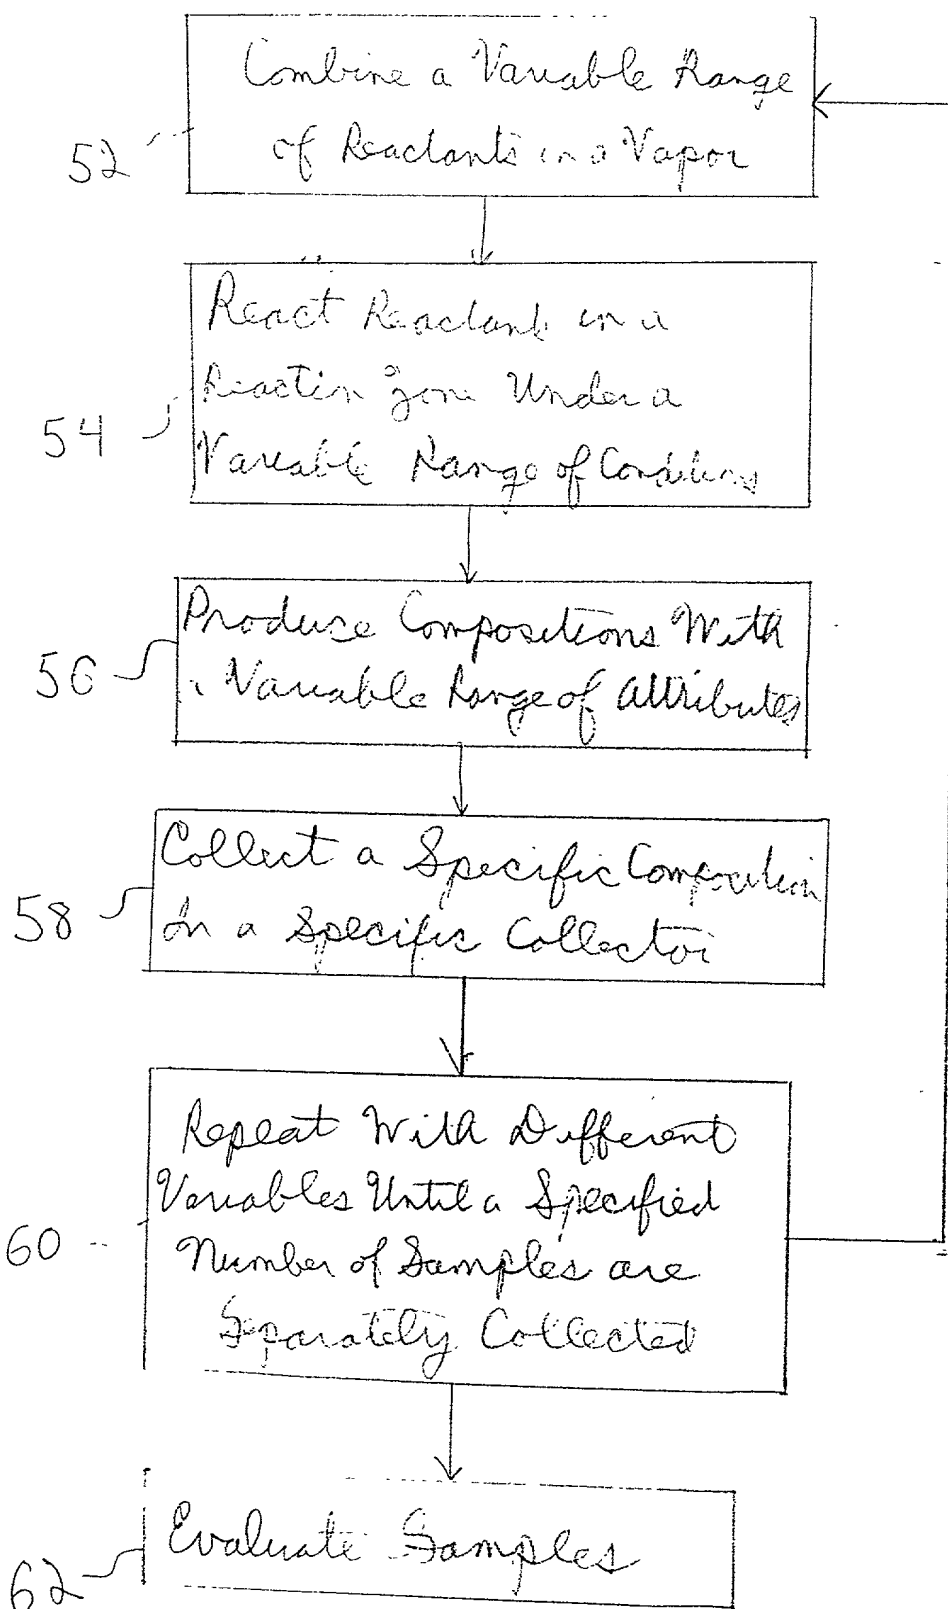 Combine a Variable Range
of Reactants in a Vapor
52
React Reactants in a
Reaction Zone Under a
Variable Range of Conditions
54
Produce Compositions With
a Variable Range of Attributes
56
Collect a Specific Composition
In a Specific Collector
58
Repeat With Different
Variables Until a Specified
Number of Samples are
Separately Collected
60
Evaluate Samples
62